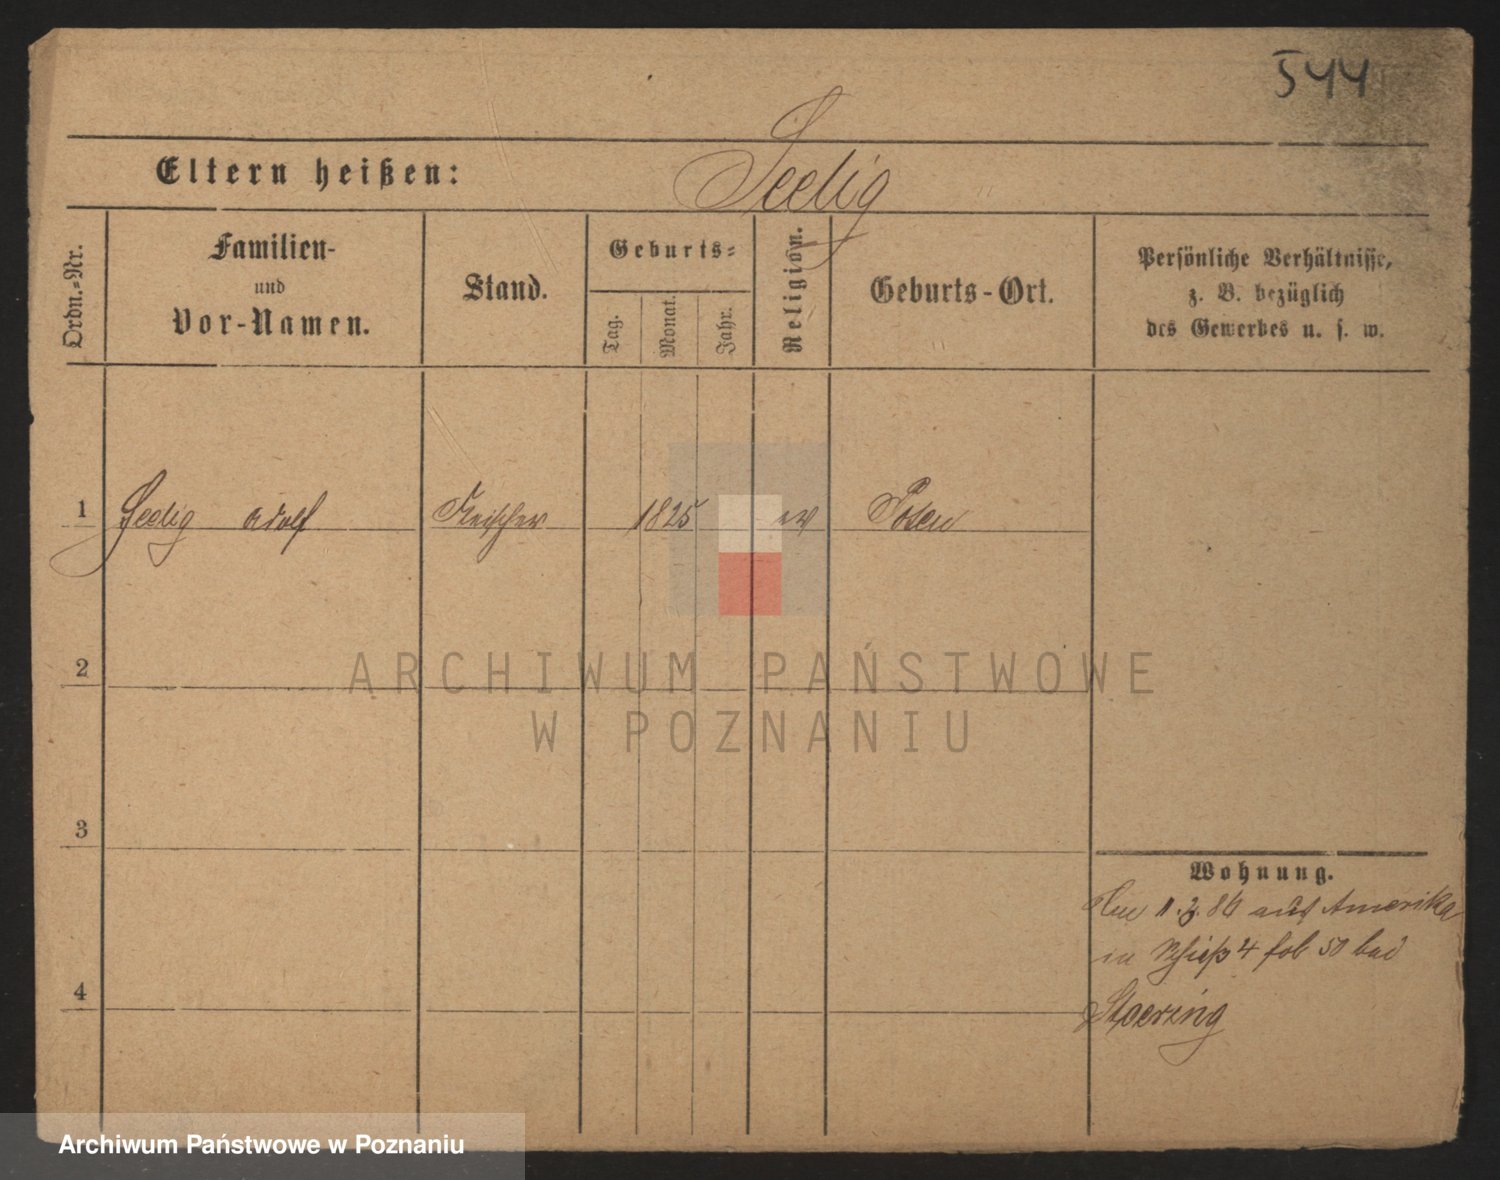 544
Eltern heißen: Seelig
Ordn.-Nr.
Familien-
und
Vor-Namen.
Stand.
Geburts-
Tag.
Monat.
Jahr.
Religion.
Geburts-Ort.
Persönliche Verhältnisse,
z. B. bezüglich
des Gewerbes u. s. w.
1 Seelig Adolf Fleischer 1825 ev Posen
2
3
4
Wohnung.
11. 3. 86 aus Amerika
in Schieß 4 fol 50 bei
Stoerzing
ARCHIWUM PAŃSTWOWE
W POZNANIU
Archiwum Państwowe w Poznaniu